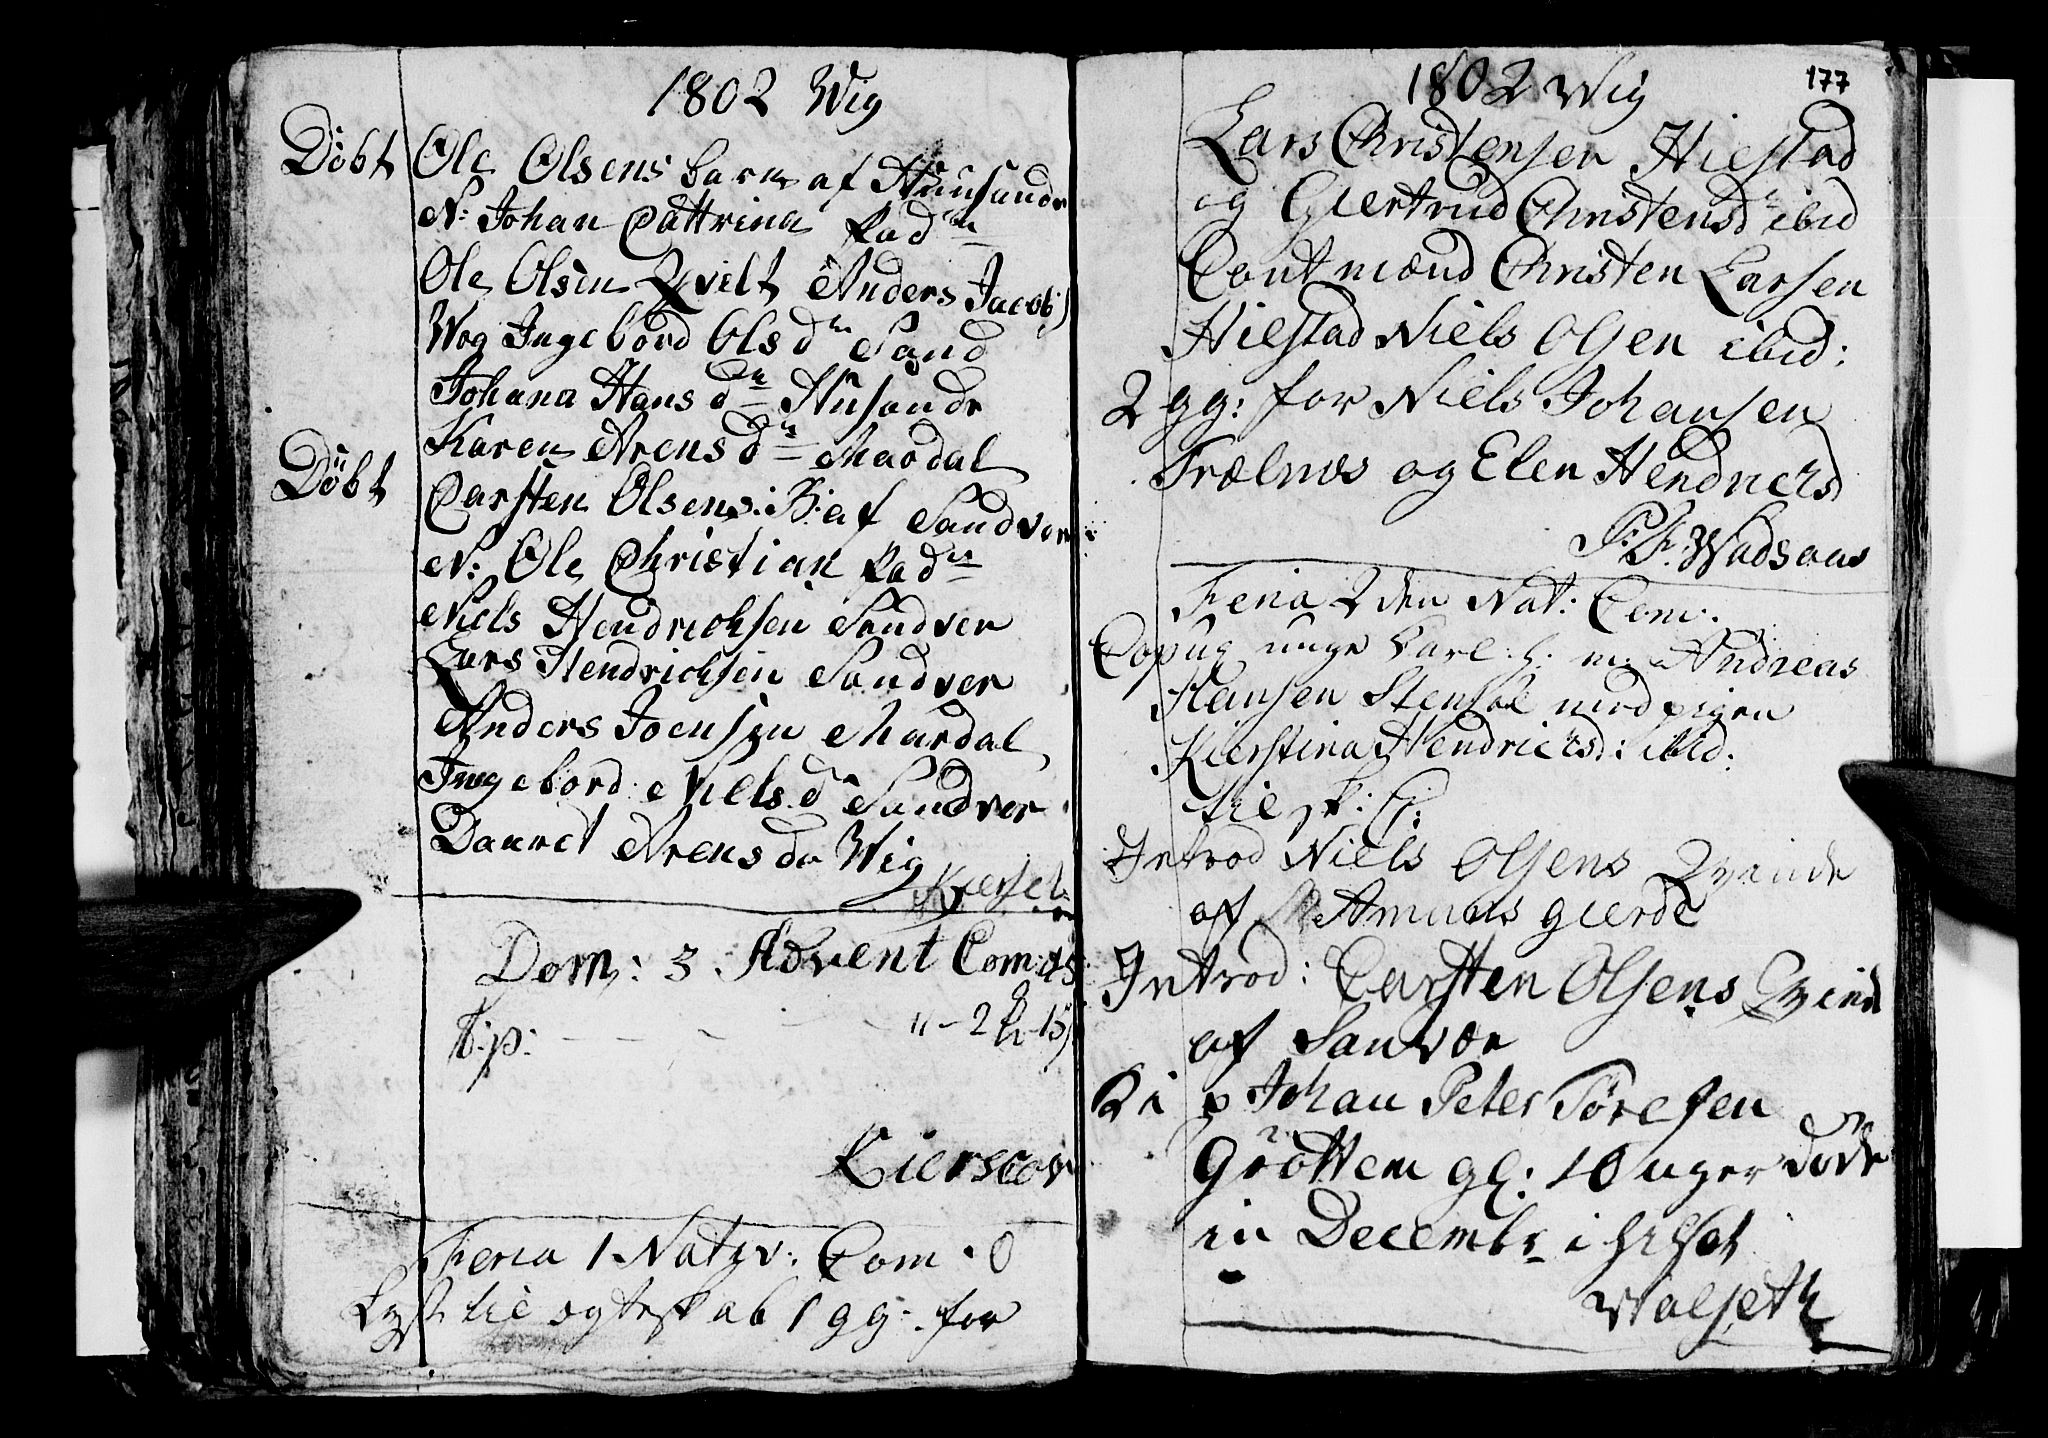 1802 Wig
Döbt Ole Olsens barn af Huusande
N: Johan Cattrina Fad
Ole Olsen Qvilt Anders Jacobs
Wog Ingebord Olsd Sand
Johana Hansd Husande
Karen Arensd Mardal
Döbt Carsten Olsens: B: af Sandver
N: Ole Christian Fad
Niels Hendrichsen Sandver
Lars Hendrichsen Sandver
Anders Joensen Mardal
Ingebord Nielsd Sandver
Daaret Arens da Wig
Dom: 3 Advent Com:
T:p: - - - - 11 - 2 - 15
Kierscow
Feria 1 Nativ: Com. 0
Lyst til ægteskab 1 gg: for
1802 Wig 177
Lars Christensen Hiestad
og Giertrud Christensd ibid
Cout mænd Christen Larsen
Hiestad Niels Olsen ibid:
2 gg: for Niels Johansen
Trælnæs og Elen Hendricsd
Wadsaas
Feria 2den Nat: Com:
Copul unge karl h: m: Andreas
Hansen Stensøl med pigen
Kierstina Hendricsd: ibid:
til
Introd Niels Olsens Qvinde
af Amuns gierde
Introd: Carsten Olsens Qvind
af Sanvær
p Johan Peter Töresen
Gröttem gl: 10 uger Döde
in Decembr i
Walseth